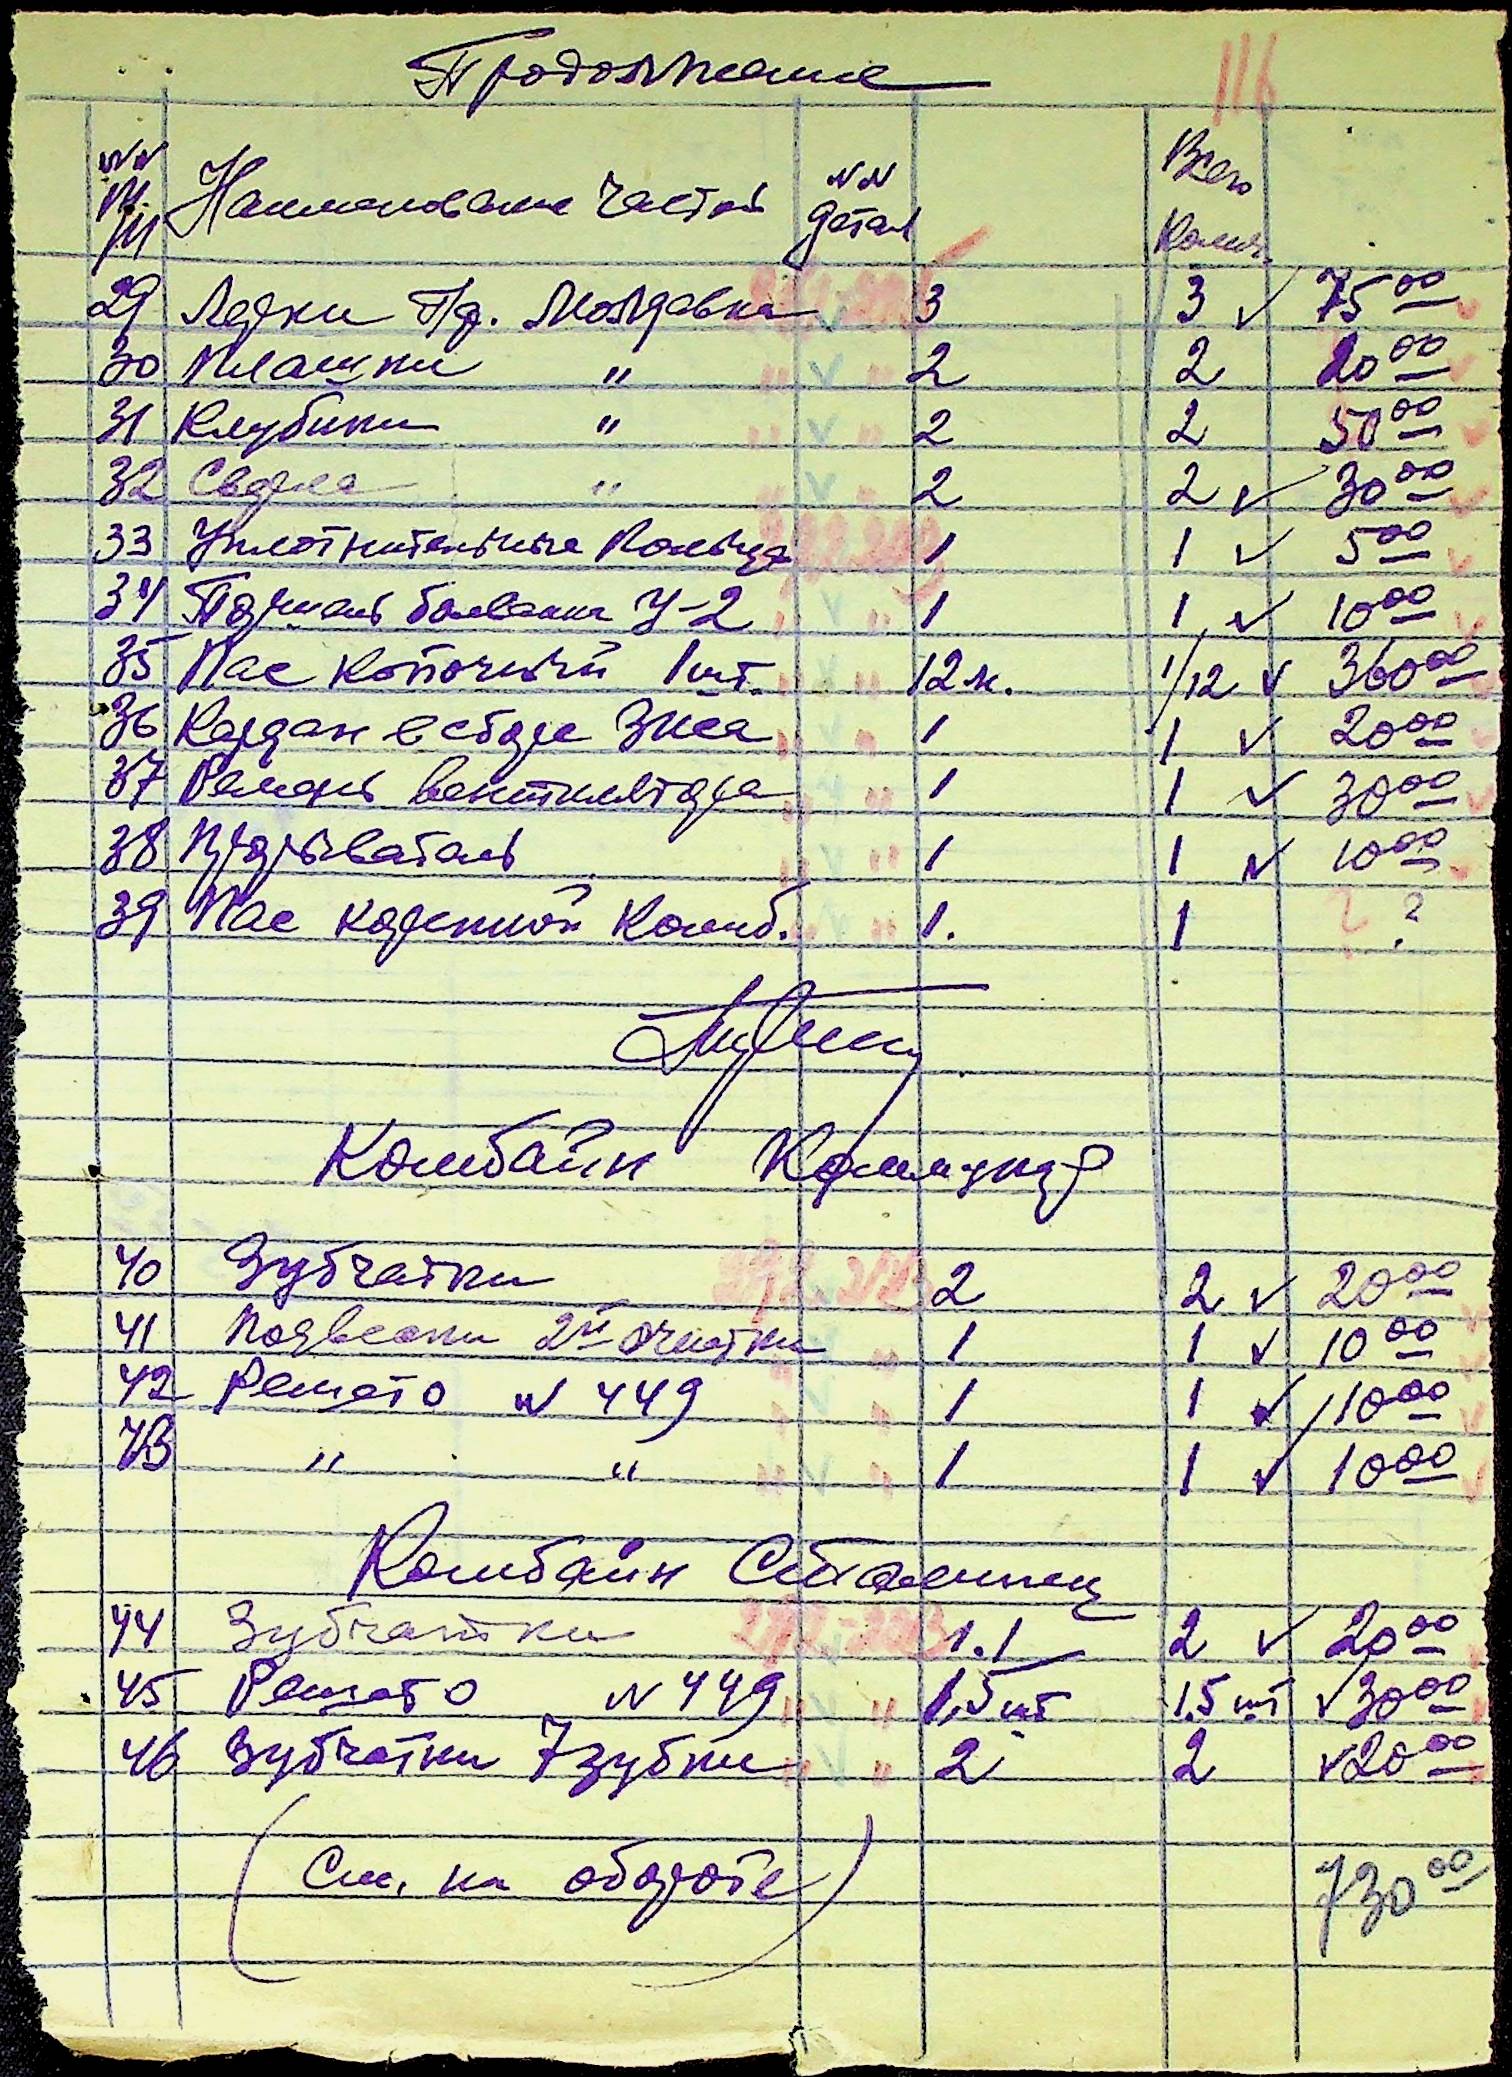 Продолжение
116
№№ п/п Наименование частей №№ детал Всего колич.
29 Лерки Тр. Молдавка 3 3 75 00
30 Плашки " 2 2 20 00
31 Клубики " 2 2 50 00
32 Сверла " 2 2 30 00
33 Уплотнительные кольца 1 1 5 00
34 болванки У-2 1 1 10 00
35 Пас 1 шт. 12 м. 1/12 360 00
36 Кардан в сборе Зиса 1 1 20 00
37 Ремень вентилятора 1 1 30 00
38 Прерыватель 1 1 10 00
39 Пас коренной Комб. 1. 1 ?
Комбайн Коммунар
40 Зубчатки 2 2 20 00
41 Подвески 2й очистки 1 1 10 00
42 Решето № 449 1 1 10 00
43 " " 1 1 10 00
Комбайн Сталинец
44 Зубчатки 1.1 2 20 00
45 Решето № 449 1,5 шт 1.5 шт 30 00
46 Зубчатки 7 зубки 2 2 20 00
(См. на обороте)
730 00